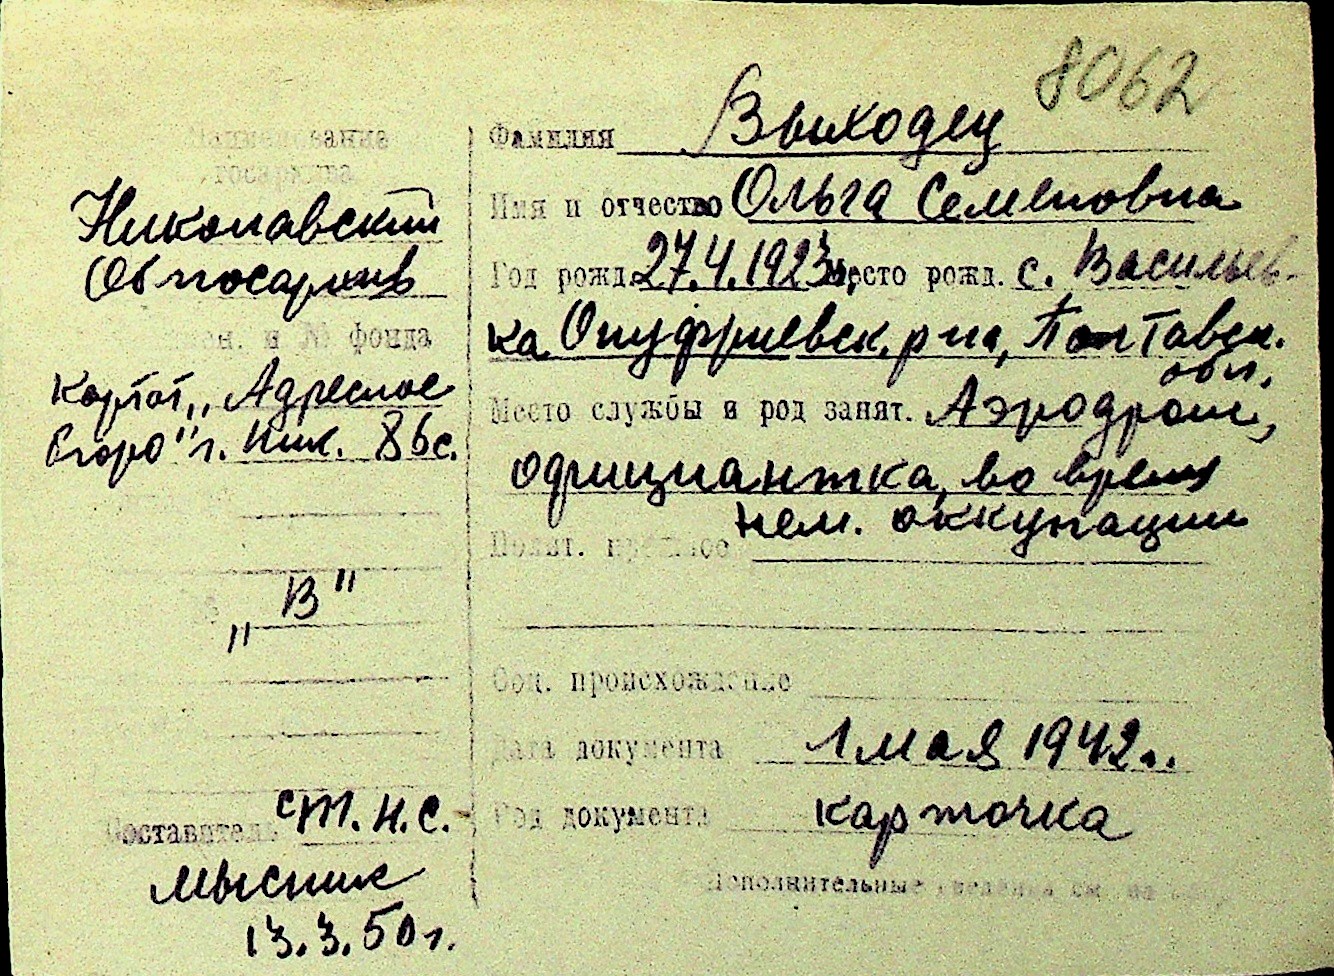 8062
Наименование
госархива
Николаевский
Облгосархив
наимен. и № фонда
Картот. „Адресное
бюро" г. Ник. 86с.
„В"
Составитель ст. н. с.
Мысник
13.3.50 г.
Фамилия Выходец
Имя и отчество Ольга Семеновна
Год рожд. 27.4.1923 Место рожд. с. Васильев-
ка Онуфриевск. р-на, Полтавск.
обл.
Место службы и род занят. Аэродром,
официантка, во время
нем. оккупации
Полит. прошлое
Соц. происхождение
Дата документа 1 мая 1942 г.
Род документа карточка
Дополнительные сведения см. на